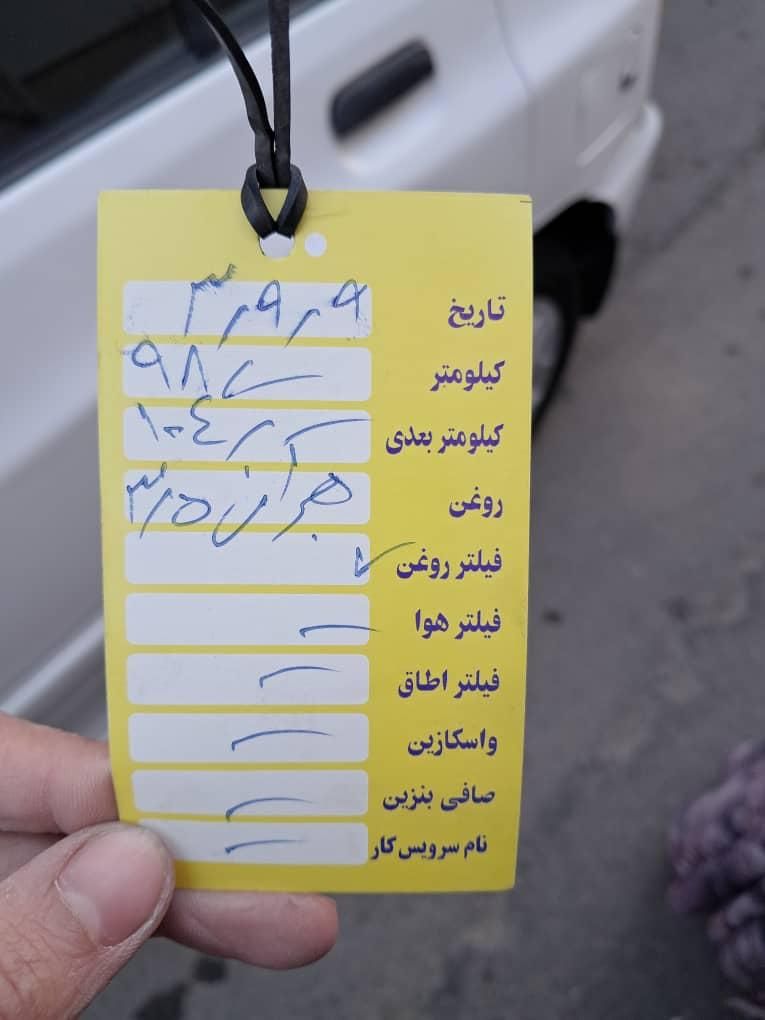 تاریخ ۳٫۹٫۹
کیلومتر ۹۸٫
کیلومتر بعدی ۱۰۴٫
روغن
فیلتر روغن ✓
فیلتر هوا —
فیلتر اطاق —
واسکازین —
صافی بنزین —
نام سرویس کار —